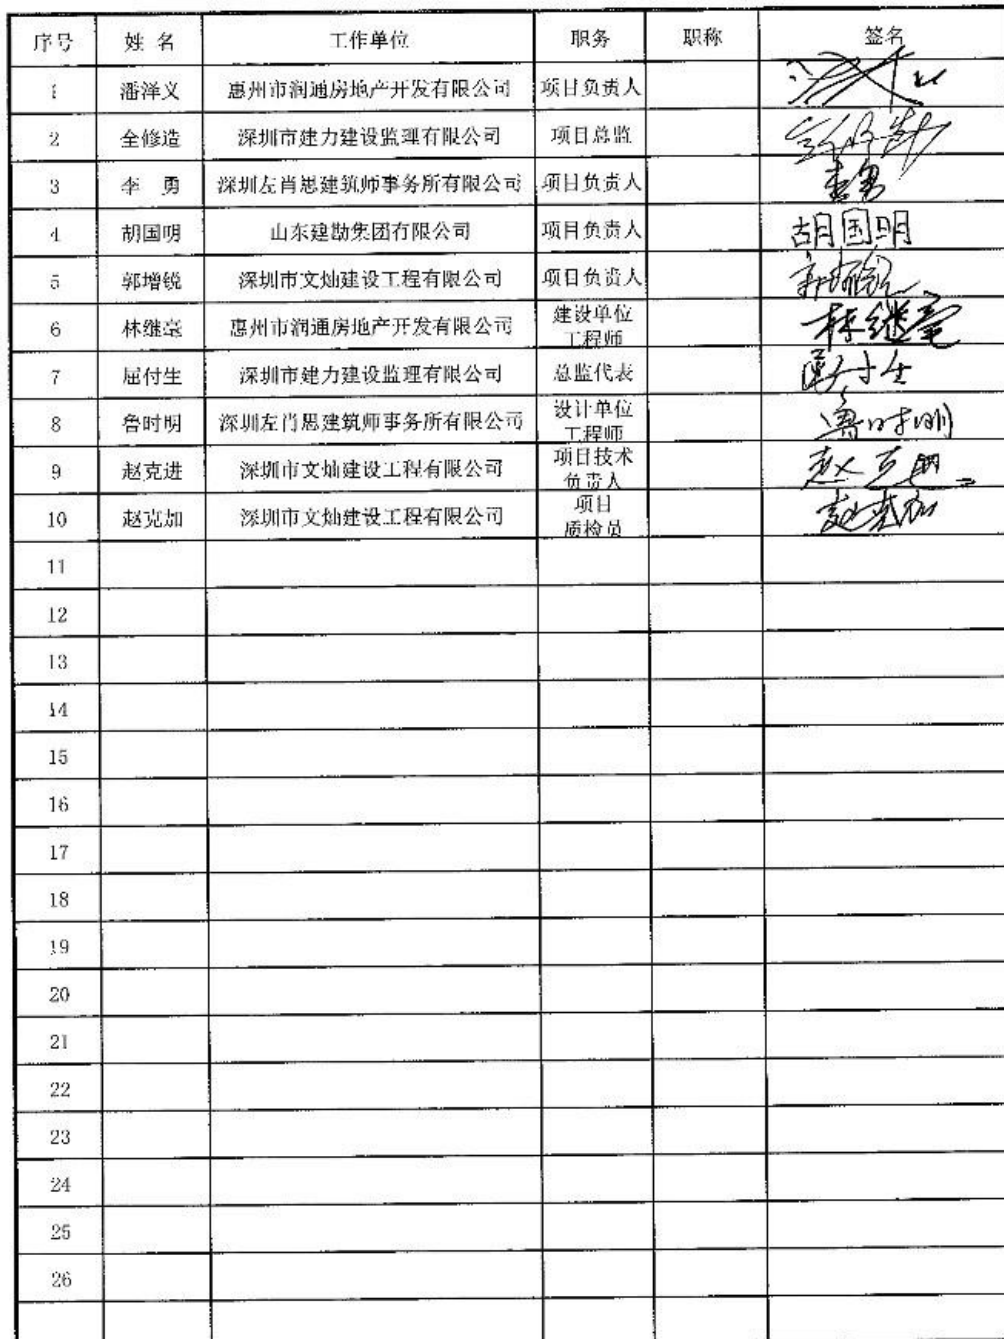 序号 姓 名 工作单位 职务 职称 签名
1 潘洋义 惠州市润通房地产开发有限公司 项目负责人
2 全修造 深圳市建力建设监理有限公司 项目总监
3 李 勇 深圳左肖思建筑师事务所有限公司 项目负责人 李勇
4 胡国明 山东建勘集团有限公司 项目负责人 胡国明
5 郭增锐 深圳市文灿建设工程有限公司 项目负责人
6 林继毫 惠州市润通房地产开发有限公司 建设单位 林继毫
工程师
7 屈付生 深圳市建力建设监理有限公司 总监代表 屈付生
8 鲁时明 深圳左肖思建筑师事务所有限公司 设计单位 鲁时明
工程师
9 赵克进 深圳市文灿建设工程有限公司 项目技术
负责人
10 赵克加 深圳市文灿建设工程有限公司 项目 赵克加
质检员
11
12
13
14
15
16
17
18
19
20
21
22
23
24
25
26